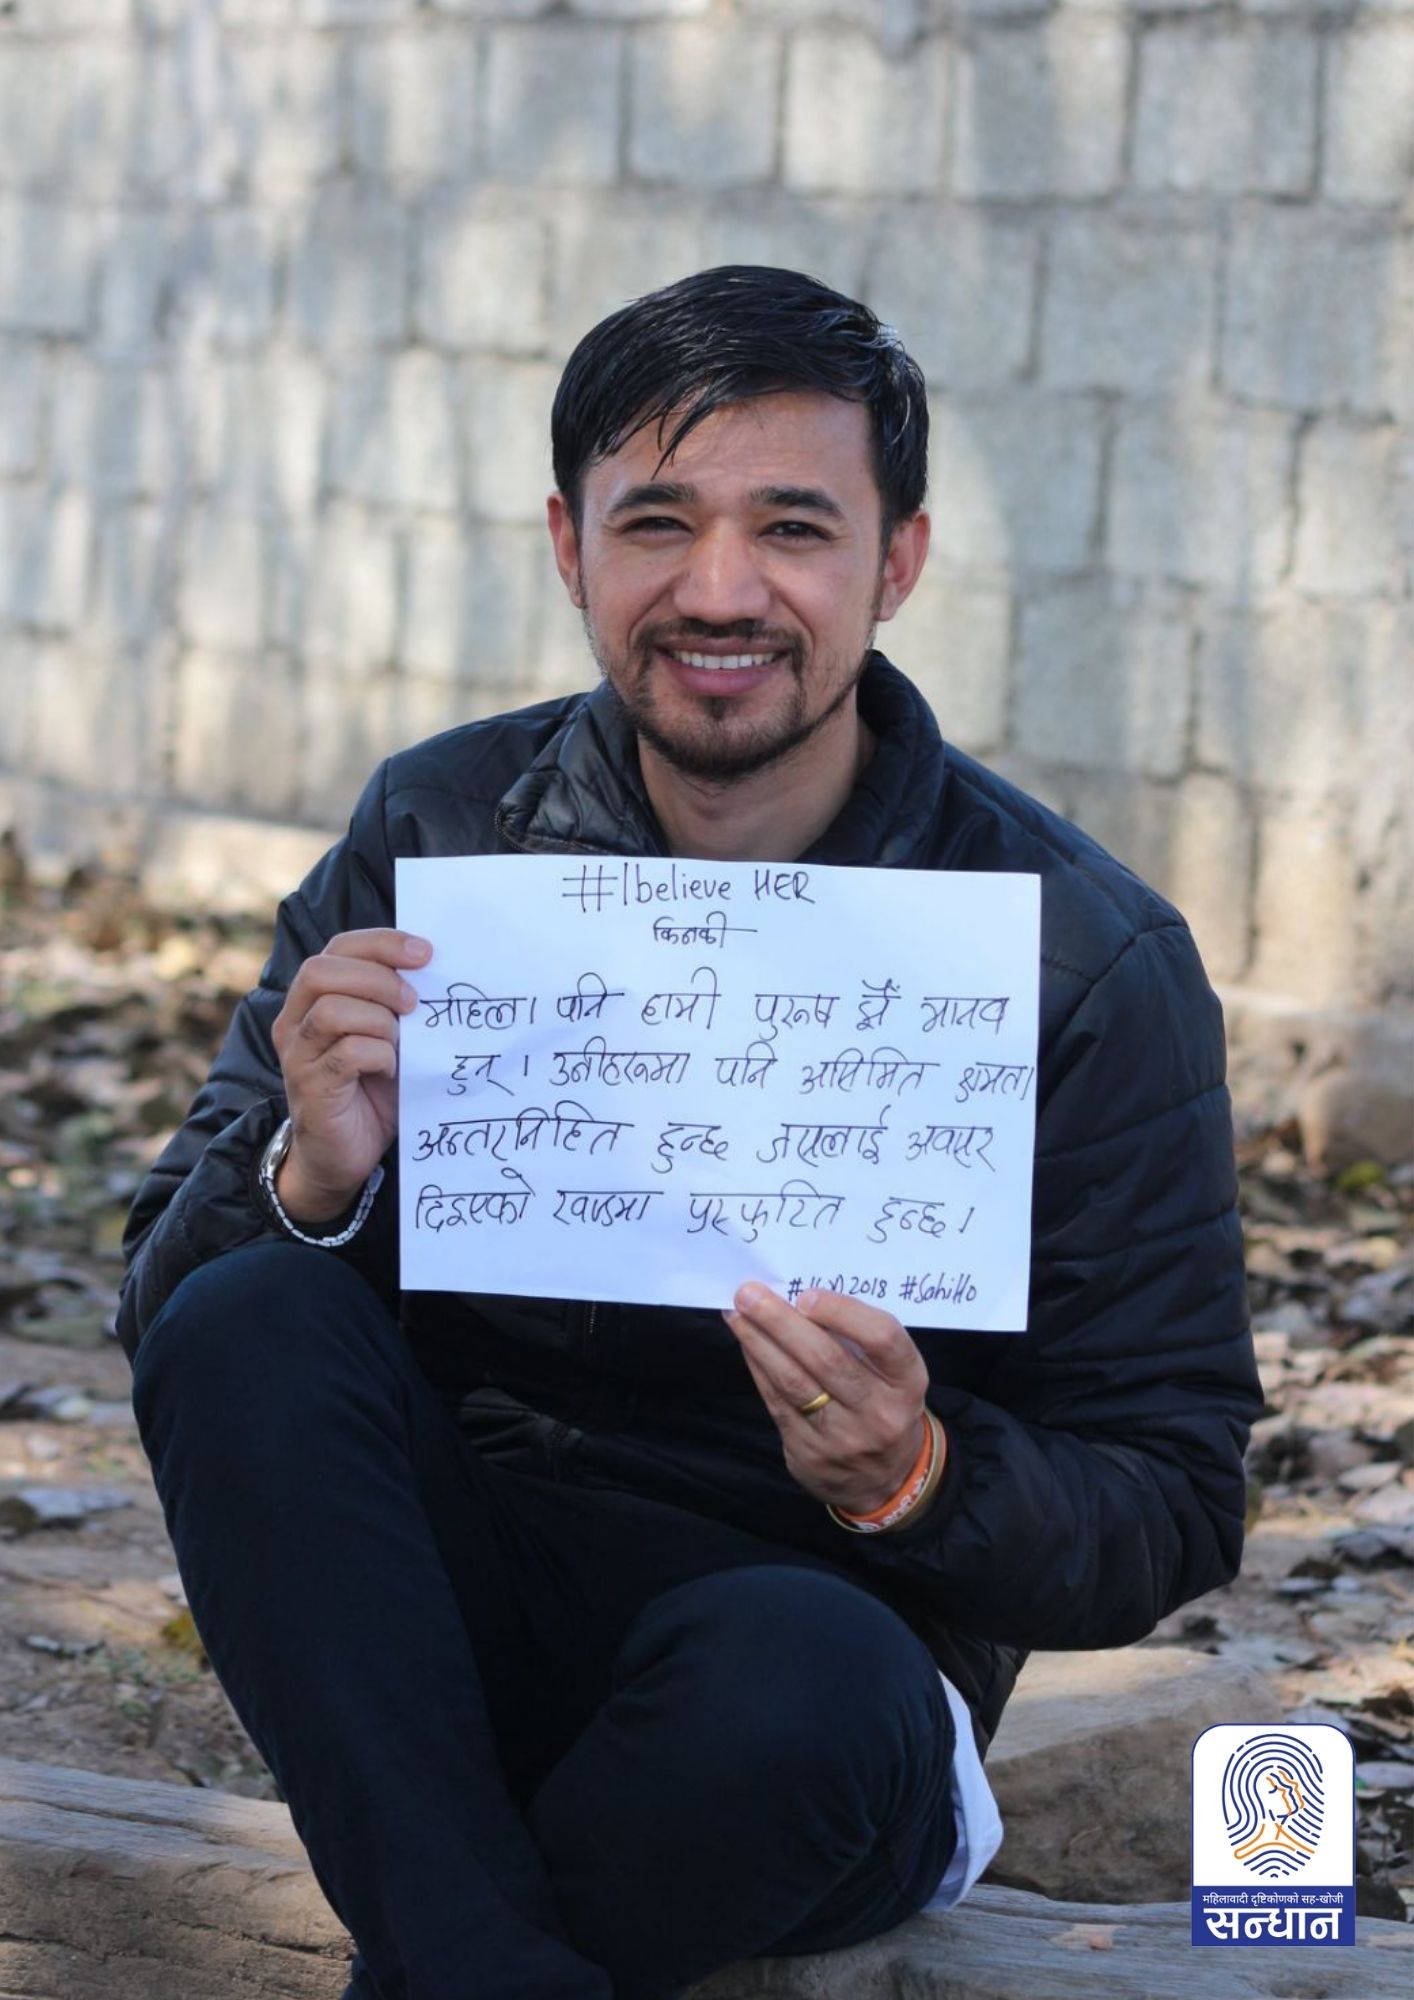 #Ibelieve HER
किनकी
महिला पनि हामी पुरुष झैं मानव
हुन् । उनीहरुमा पनि असिमित क्षमता
अन्तरनिहित हुन्छ जसलाई अवसर
दिइएको खण्डमा प्रस्फुटित हुन्छ ।
2018 #SahiHo
महिलावादी दृष्टिकोणको सह-खोजी
सन्धान